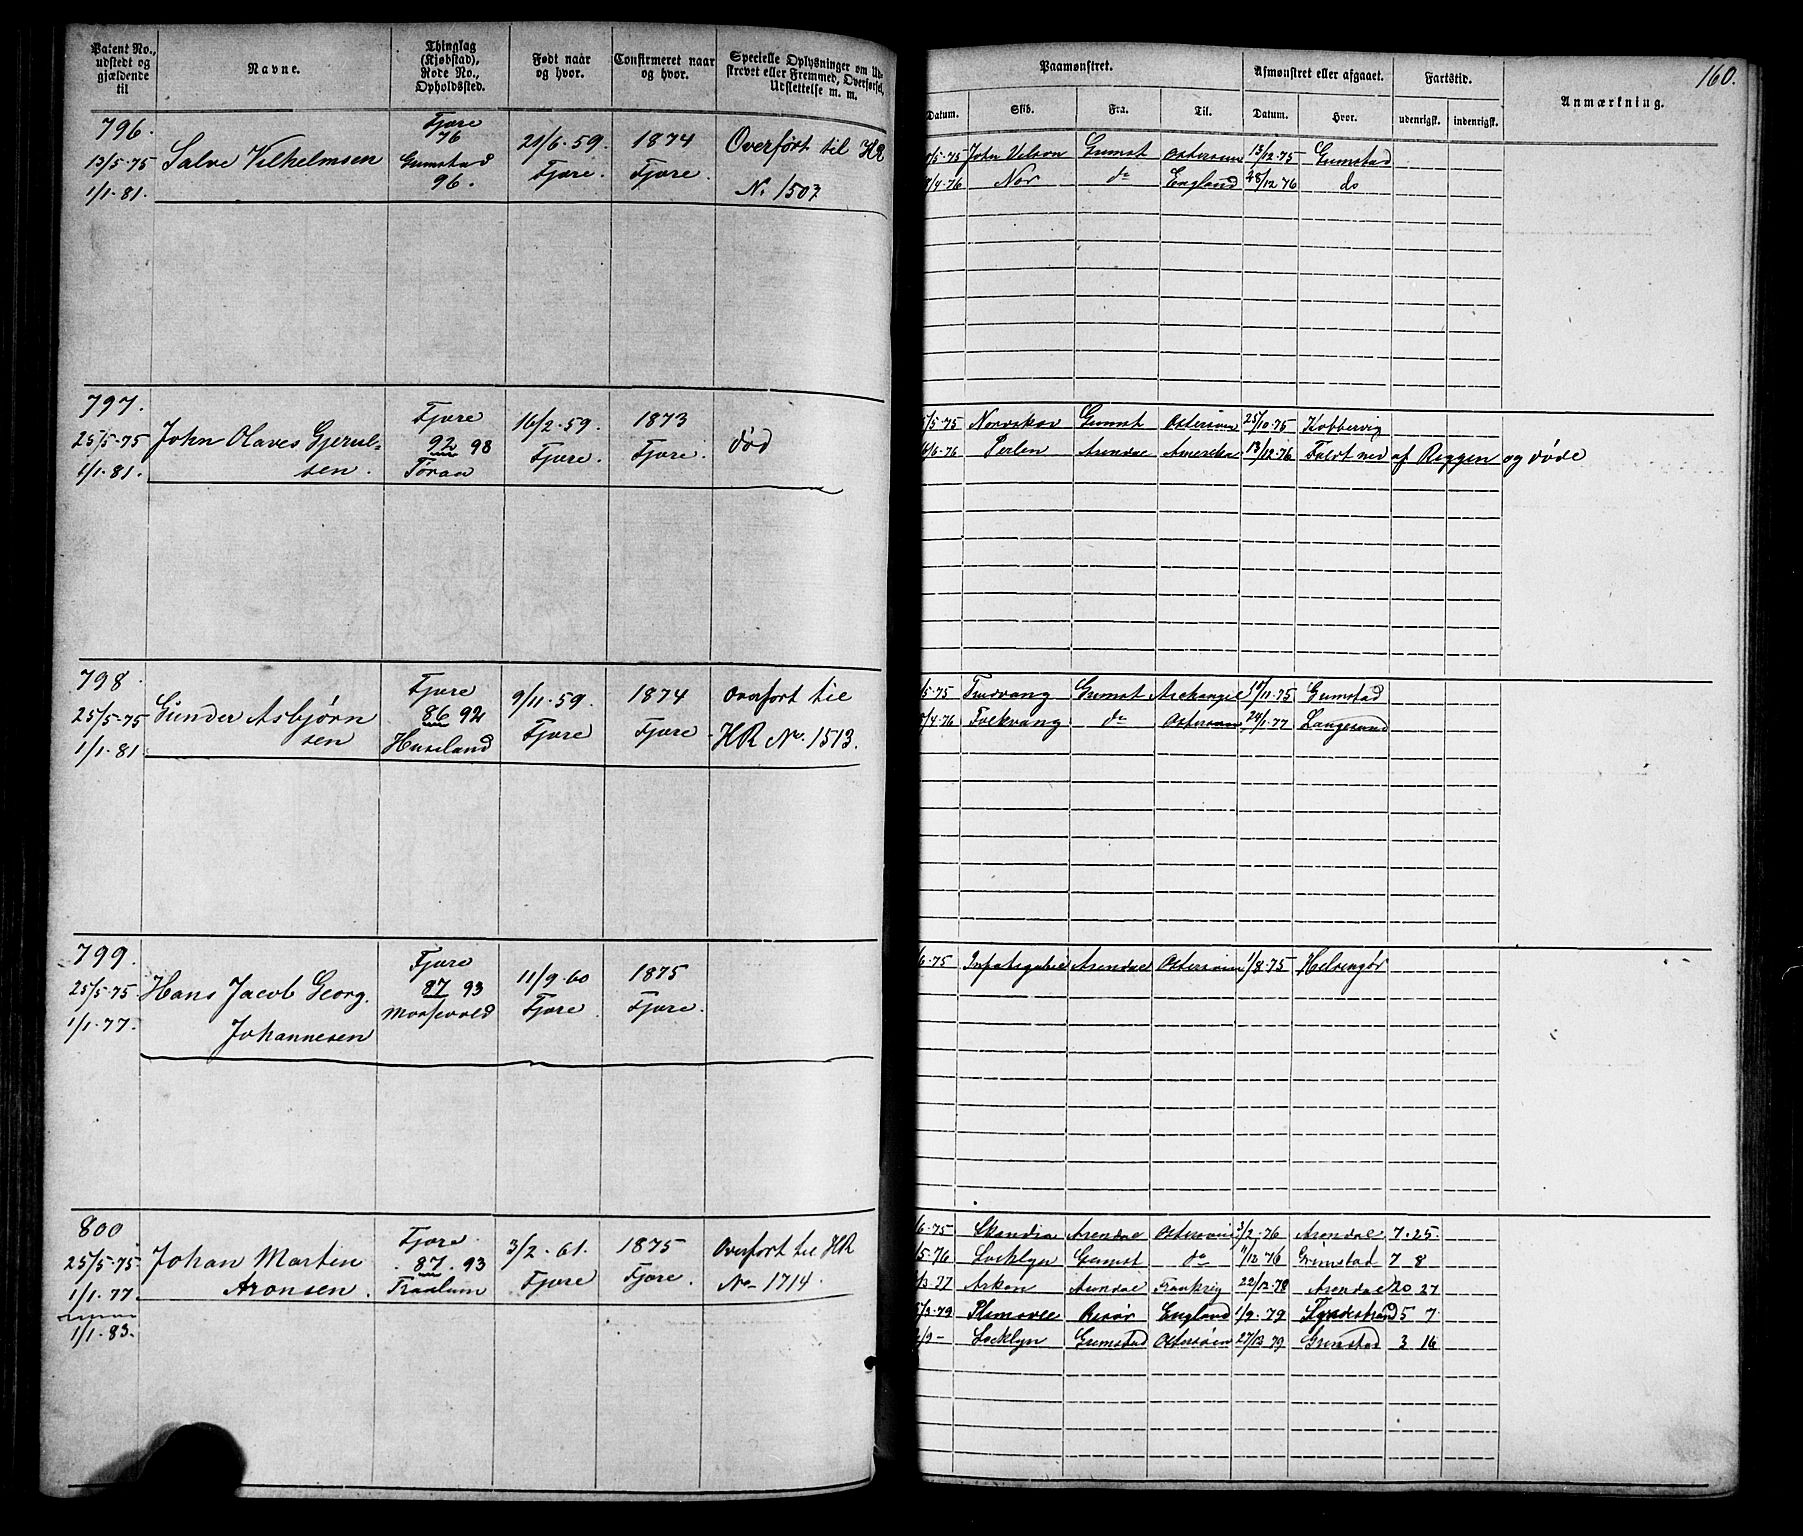 160.
Patent No., udstedt og gjældende til
Navne.
Thinglag (Kjøbstad), Rode No., Opholdssted.
Født naar og hvor.
Confirmeret naar og hvor.
Specielle Oplysninger om Udskrevet eller Fremmed, Overførsel, Udslettelse m. m.
Paamønstret.
Afmønstret eller afgaaet.
Fartstid.
Anmærkning.
Datum. Skib. Fra. Til. Datum. Hvor. udenrigsk. indenrigsk.
796.
13/5-75
1/1-81.
Salve Vilhelmsen
Fjære
76
Grimstad
96.
21/6-59.
Fjære.
1874
Fjære.
Overført til HR
No 1507
/5-75 John Grimst Østersøen 13/12-75 Grimstad
/4-76 Nor do England 28/12 76 do
797.
25/5-75
1/1-81.
John Olaves Gjerul-
sen.
Fjære
92 98
16/2-59.
Fjære.
1873
Fjære.
død
/5-75 Grimst Østersøen 25/10-75 Kobbervig
/6-76 Perlen Arendal Amerika 13/12-76 Faldt ned af Riggen og døde
798.
25/5-75
1/1-81
Gunder Asbjørn
sen
Fjære
86 92
Huseland
9/11-59.
Fjære
1874
Fjære
Overført til
HR No. 1513.
/5-75 Grimst Archangel /11-75 Grimstad
/4-76 Folkvang do Østersøen 24/1-77 Langesund
799.
25/5-75
1/1-77.
Hans Jacob Georg.
Johannesen
Fjære
87 93
11/9-60
Fjære.
1875
Fjære.
/6-75 Arendal Østersøen 1/8-75 Helsingør
800
25/5-75
1/1-77.
1/1-83.
Johan Martin
Aronsen.
Fjære.
87. 93
3/2-61.
Fjære
1875
Fjære.
Overført til HR
No 1714.
/6-75 Skandia Arendal Østersøen 3/2-76 Arendal 7-25
/5-76 Locklyn Grimst do /12 76 Grimstad 7 8
/3-77 Arendal Frankrig 22/12-78 Arendal 20 27
/3-79 Risør England 1/9-79 5 7
/9- Locklyn Grimstad Østersøen 27/12 79 Grimstad 3 16